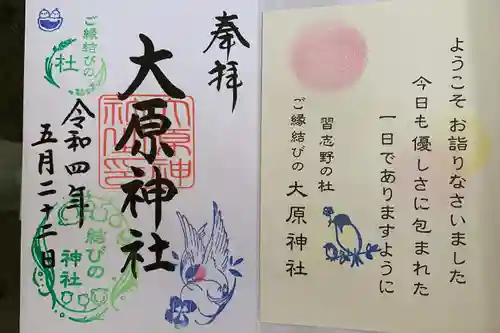 奉拝
大原神社
ご縁結びの
社
令和四年
五月二十二日
結びの
神社
ようこそ お詣りなさいました
今日も優しさに包まれた
一日でありますように
習志野の杜
ご縁結びの 大原神社